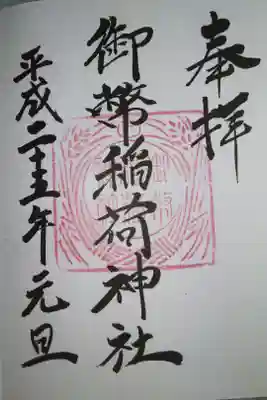 奉拝
御幣稲荷神社
平成二十五年元旦